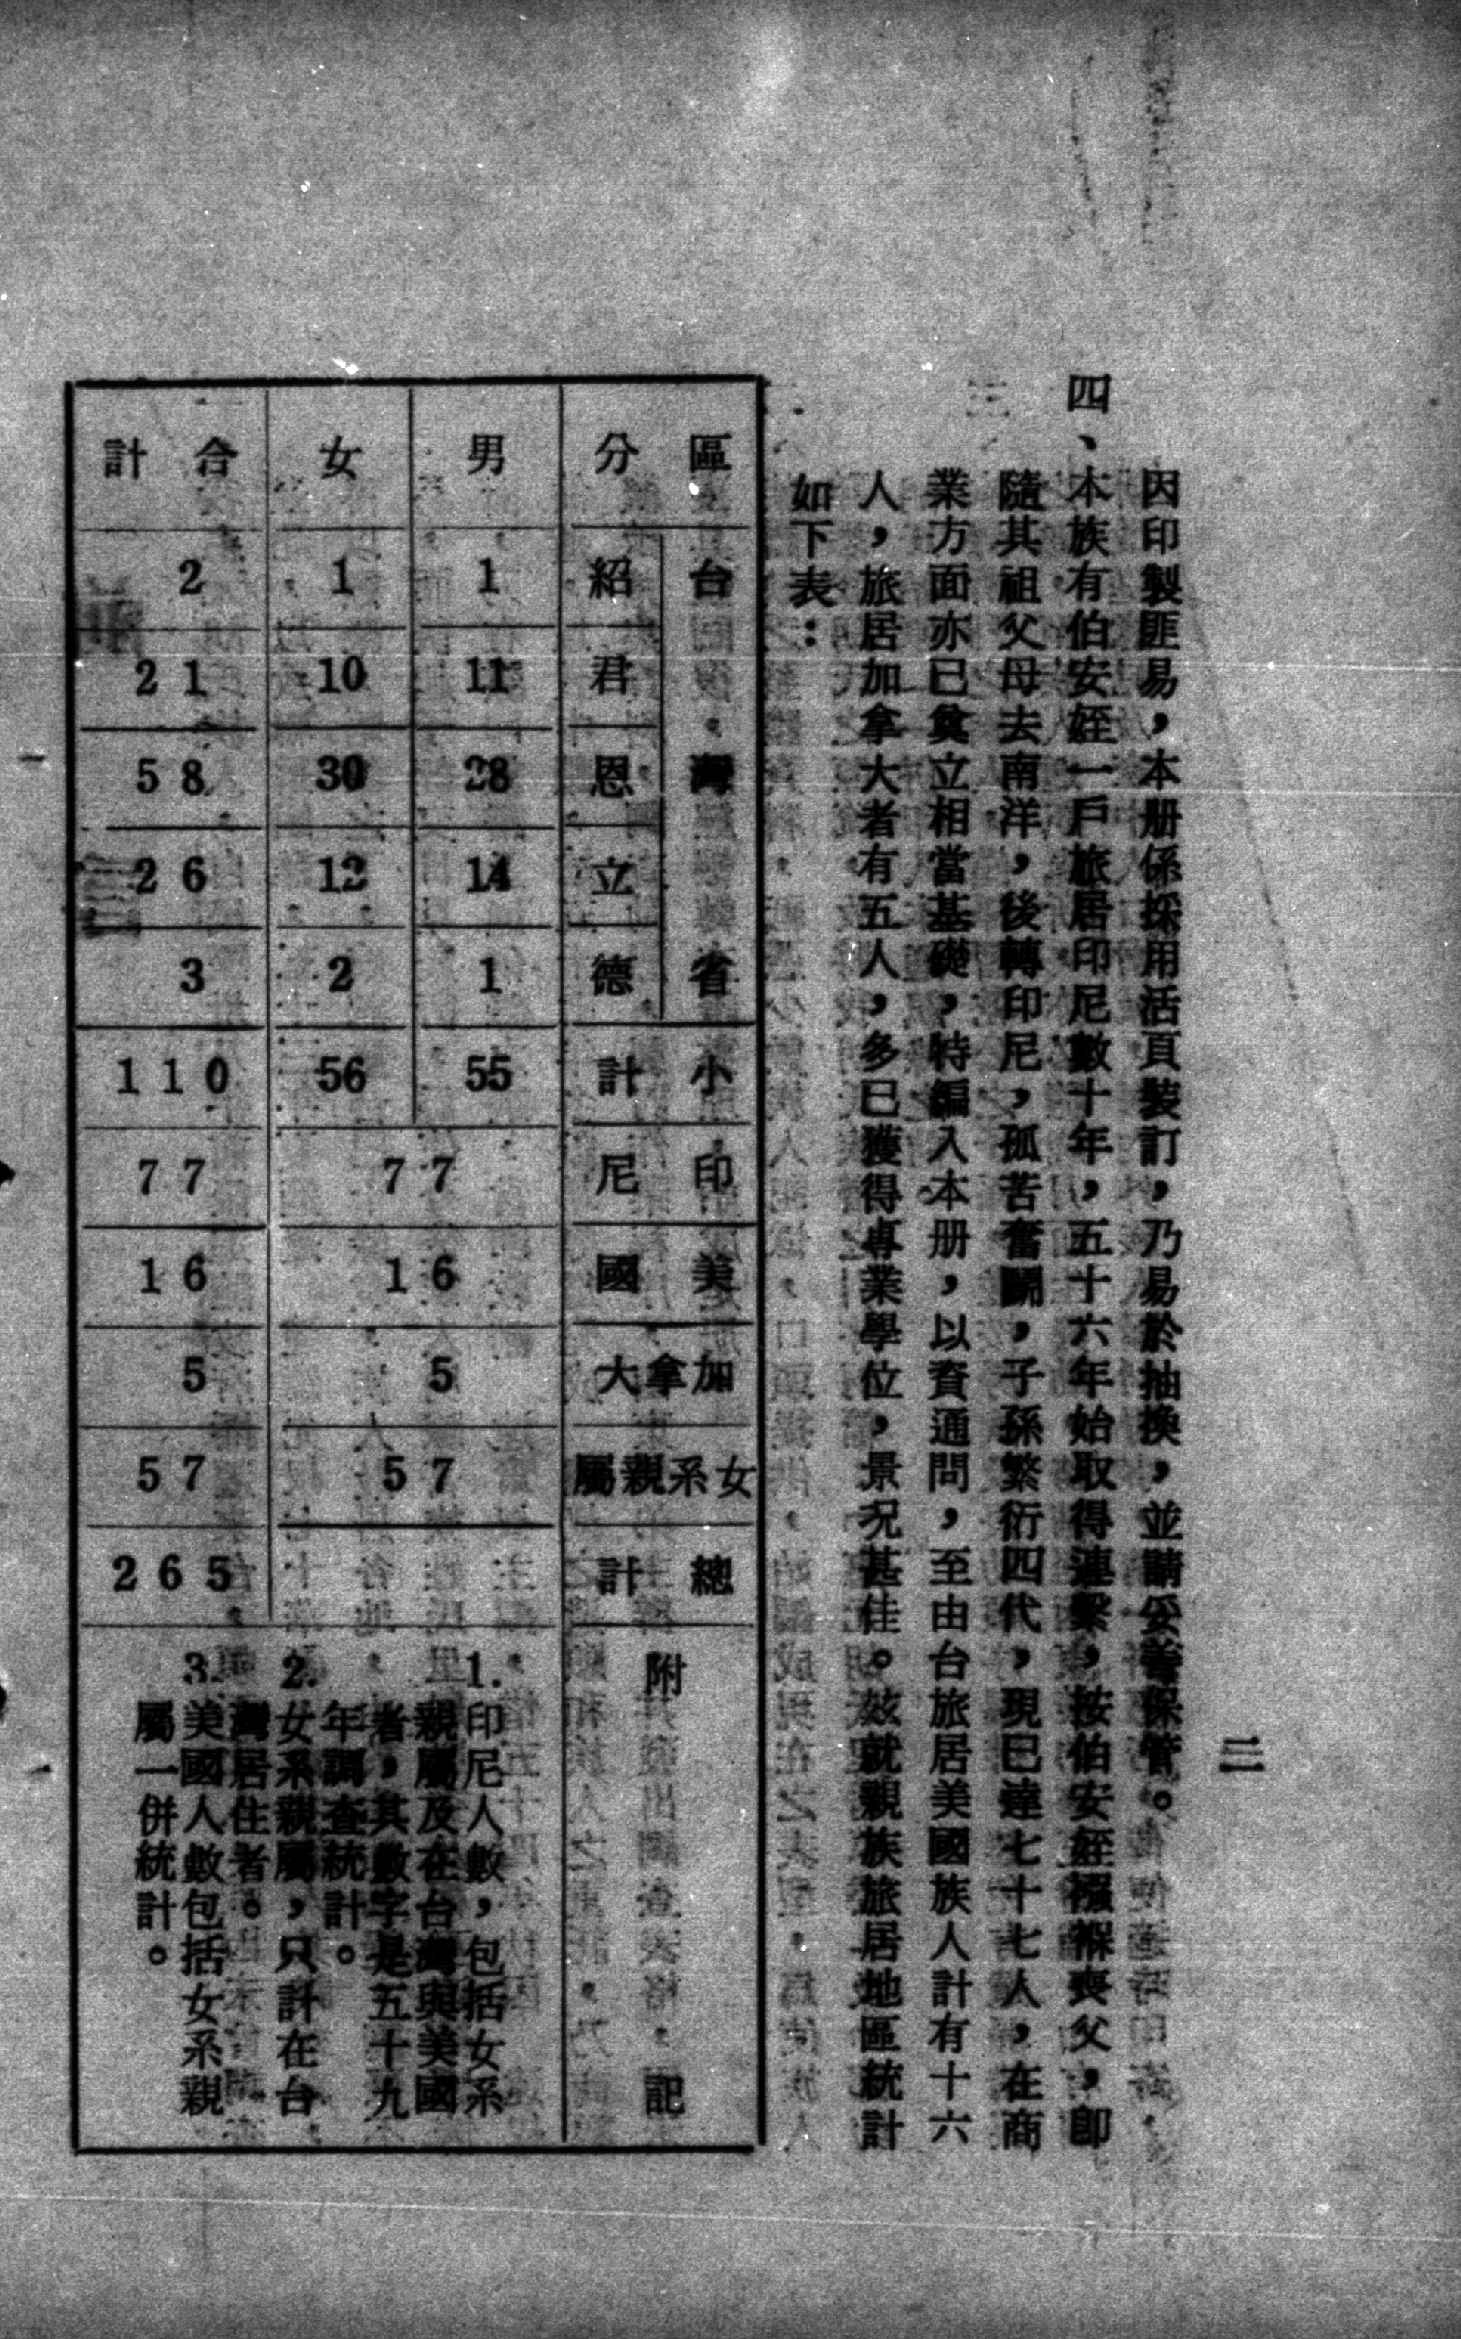 二
因印製匪易，本册係採用活頁裝訂，乃易於抽換，並請妥善保管。
四、本族有伯安姪一戶旅居印尼數十年，五十六年始取得連繫，按伯安姪襁褓喪父，卽
隨其祖父母去南洋，後轉印尼，孤苦奮鬭，子孫繁衍四代，現已達七十七人，在商
業方面亦已奠立相當基礎，特編入本册，以資通問，至由台旅居美國族人計有十六
人，旅居加拿大者有五人，多已獲得專業學位，景况甚佳。玆就親族旅居地區統計
如下表：
區分 台灣省 紹 君 恩 立 德 小計 印尼 美國 加拿大 女系親屬 總計 附記
男 1 11 28 14 1 55
女 1 10 30 12 2 56
77 16 5 57
合計 2 21 58 26 3 110 77 16 5 57 265
1.印尼人數，包括女系
親屬及在台灣與美國
者，其數字是五十九
年調查統計。
2.女系親屬，只計在台
灣居住者。
3.美國人數包括女系親
屬一併統計。